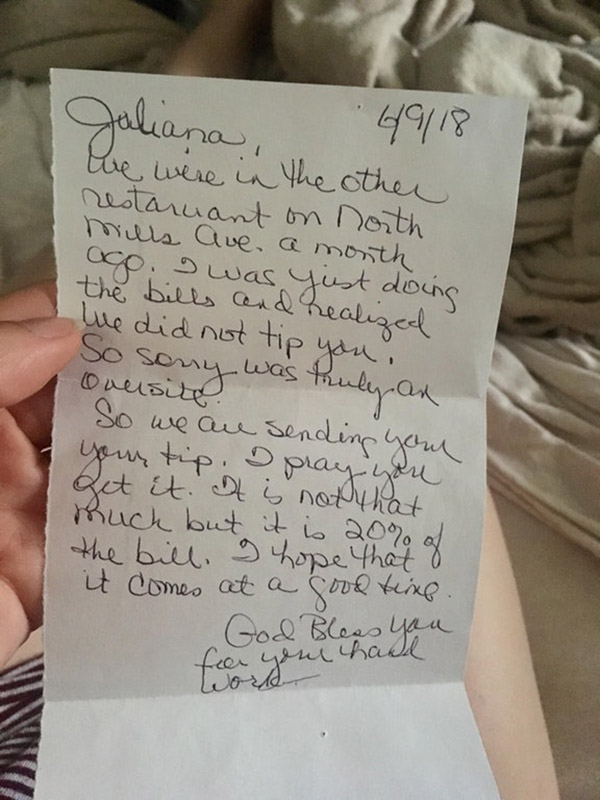 6/9/18
Juliana,
We were in the other
restaruant on North
Mills Ave. a month
ago. I was just doing
the bills and realized
we did not tip you.
So sorry was truly an
oversite.
So we are sending you
your tip. I pray you
get it. It is not that
much but it is 20% of
the bill. I hope that
it comes at a good time.
God Bless you
for your hard
work